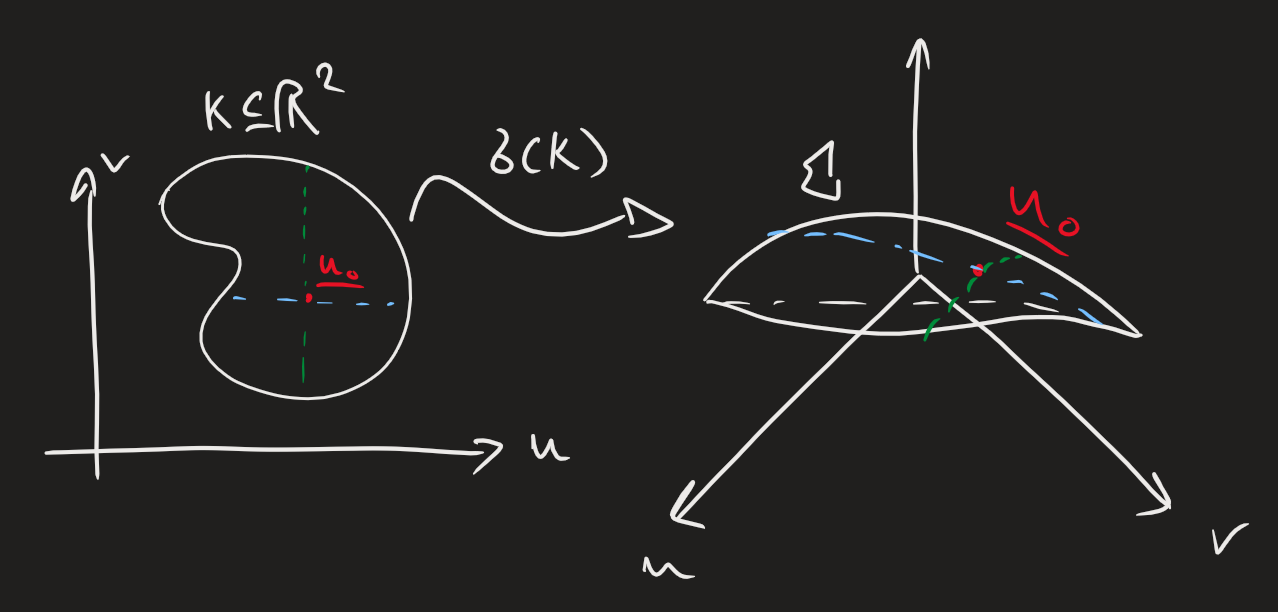 K ⊆ ℝ²
v
u₀
u
δ(K)
Σ
u₀
u
v